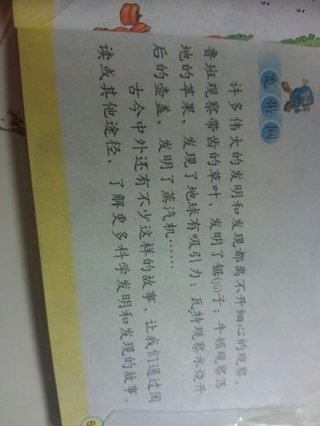 宽带网
许多伟大的发明和发现都离不开细心的观察。
鲁班观察带齿的草叶，发明了锯(jù)子；牛顿观察落
地的苹果，发现了地球有吸引力；瓦特观察水烧开
后的壶盖，发明了蒸汽机……
古今中外还有不少这样的故事，让我们通过阅
读或其他途径，了解更多科学发明和发现的故事。